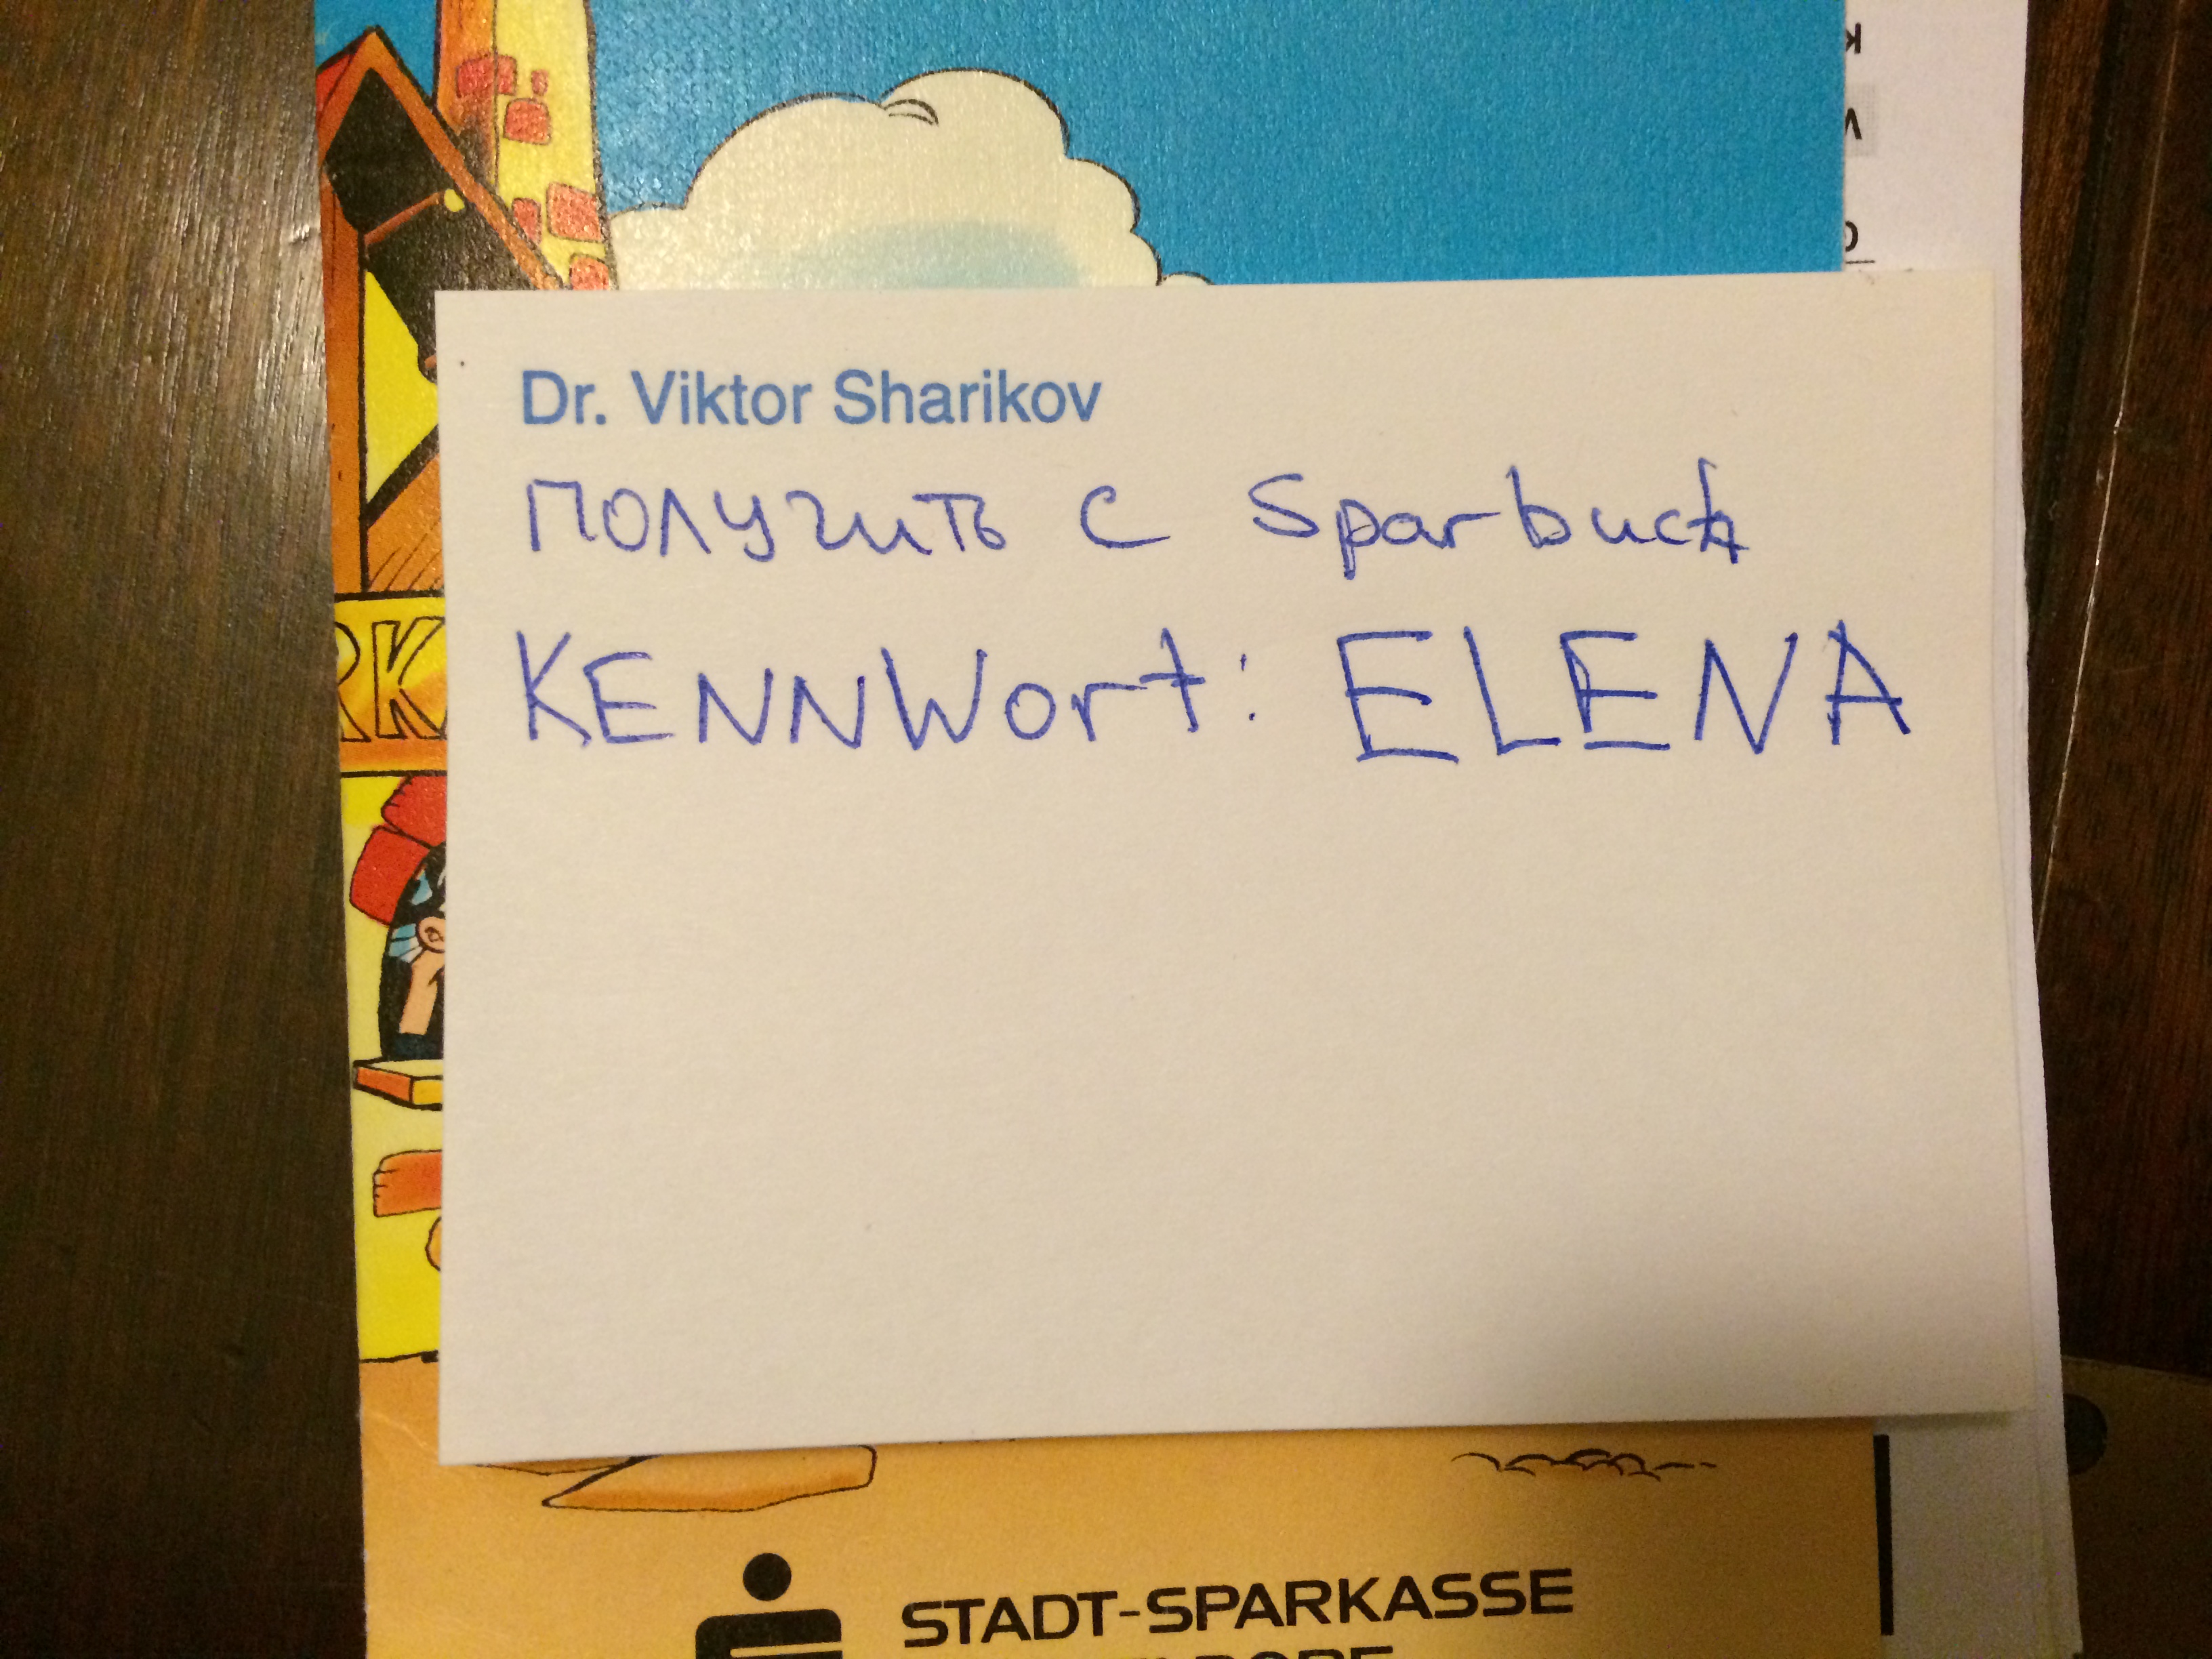 Dr. Viktor Sharikov
получить с Sparbuch
KENNWort: ELENA
RK
STADT-SPARKASSE